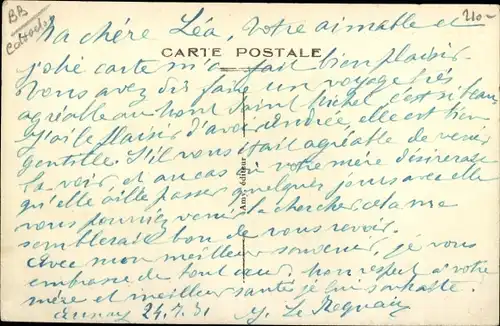 BB
Calvados
210-
Ma chère Léa, Votre aimable et
CARTE POSTALE
jolie carte m'a fait bien plaisir.
Vous avez dû faire un voyage très
agréable au mont Saint Michel c'est si beau
J'ai le plaisir d'avoir Andrée, elle est bien
gentille. S'il vous était agréable de venir
la voir, et au cas où votre mère désirerait
qu'elle aille passer quelques jours avec elle
vous pourriez venir la chercher cela me
semblerait bon de vous revoir.
Avec mon meilleur souvenir, je vous
embrasse de tout cœur, mon respect à votre
mère et meilleur santé je lui souhaite.
Aunay 24.7.31 Y. Le
Amy, éditeur